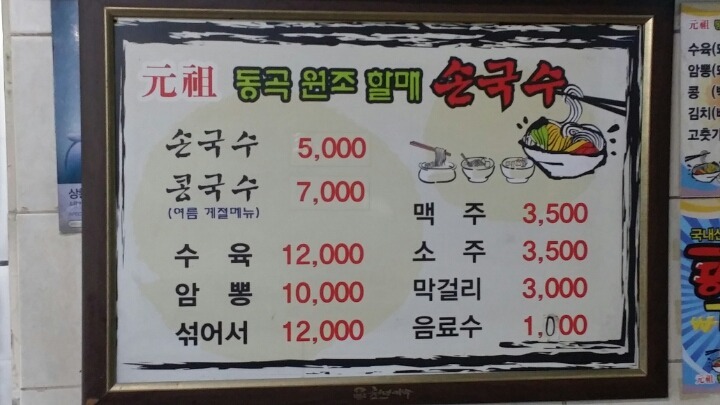 元祖 동곡 원조 할매 손국수
손국수 5,000
콩국수 7,000
(여름 계절메뉴)
수육 12,000
암뽕 10,000
섞어서 12,000
맥주 3,500
소주 3,500
막걸리 3,000
음료수 1,000
元祖
수육(
암뽕(
콩
김치(
고춧가
국내산
元祖